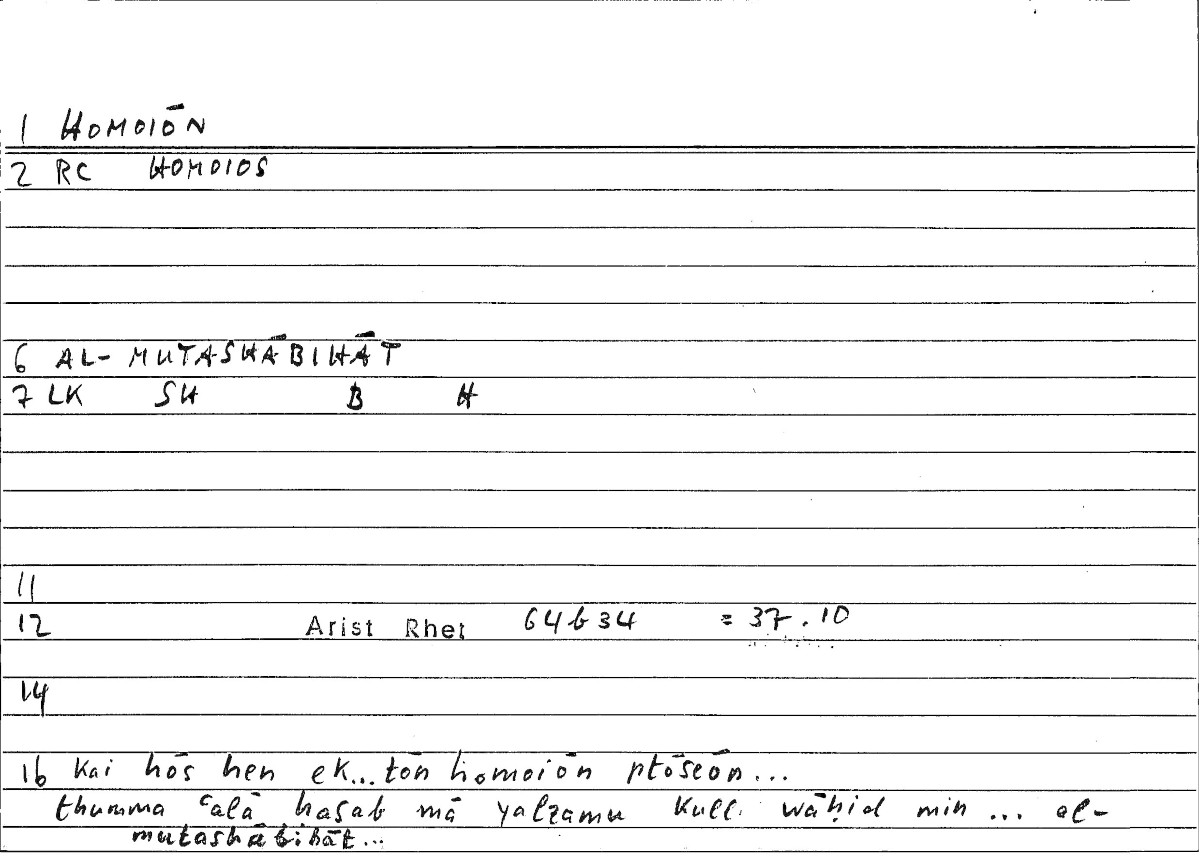 1 HOMOIŌN
2 RC HOMOIOS
6 AL-MUTASHĀBIHĀT
7 LK SH B H
11
12 Arist Rhet 64b34 = 37.10
14
16 Kai hōs hen ek... tōn homoiōn ptōseōn...
thumma ʿalā ḥasab mā yalzamu kull wāḥid min ... al-
mutashābihāt...